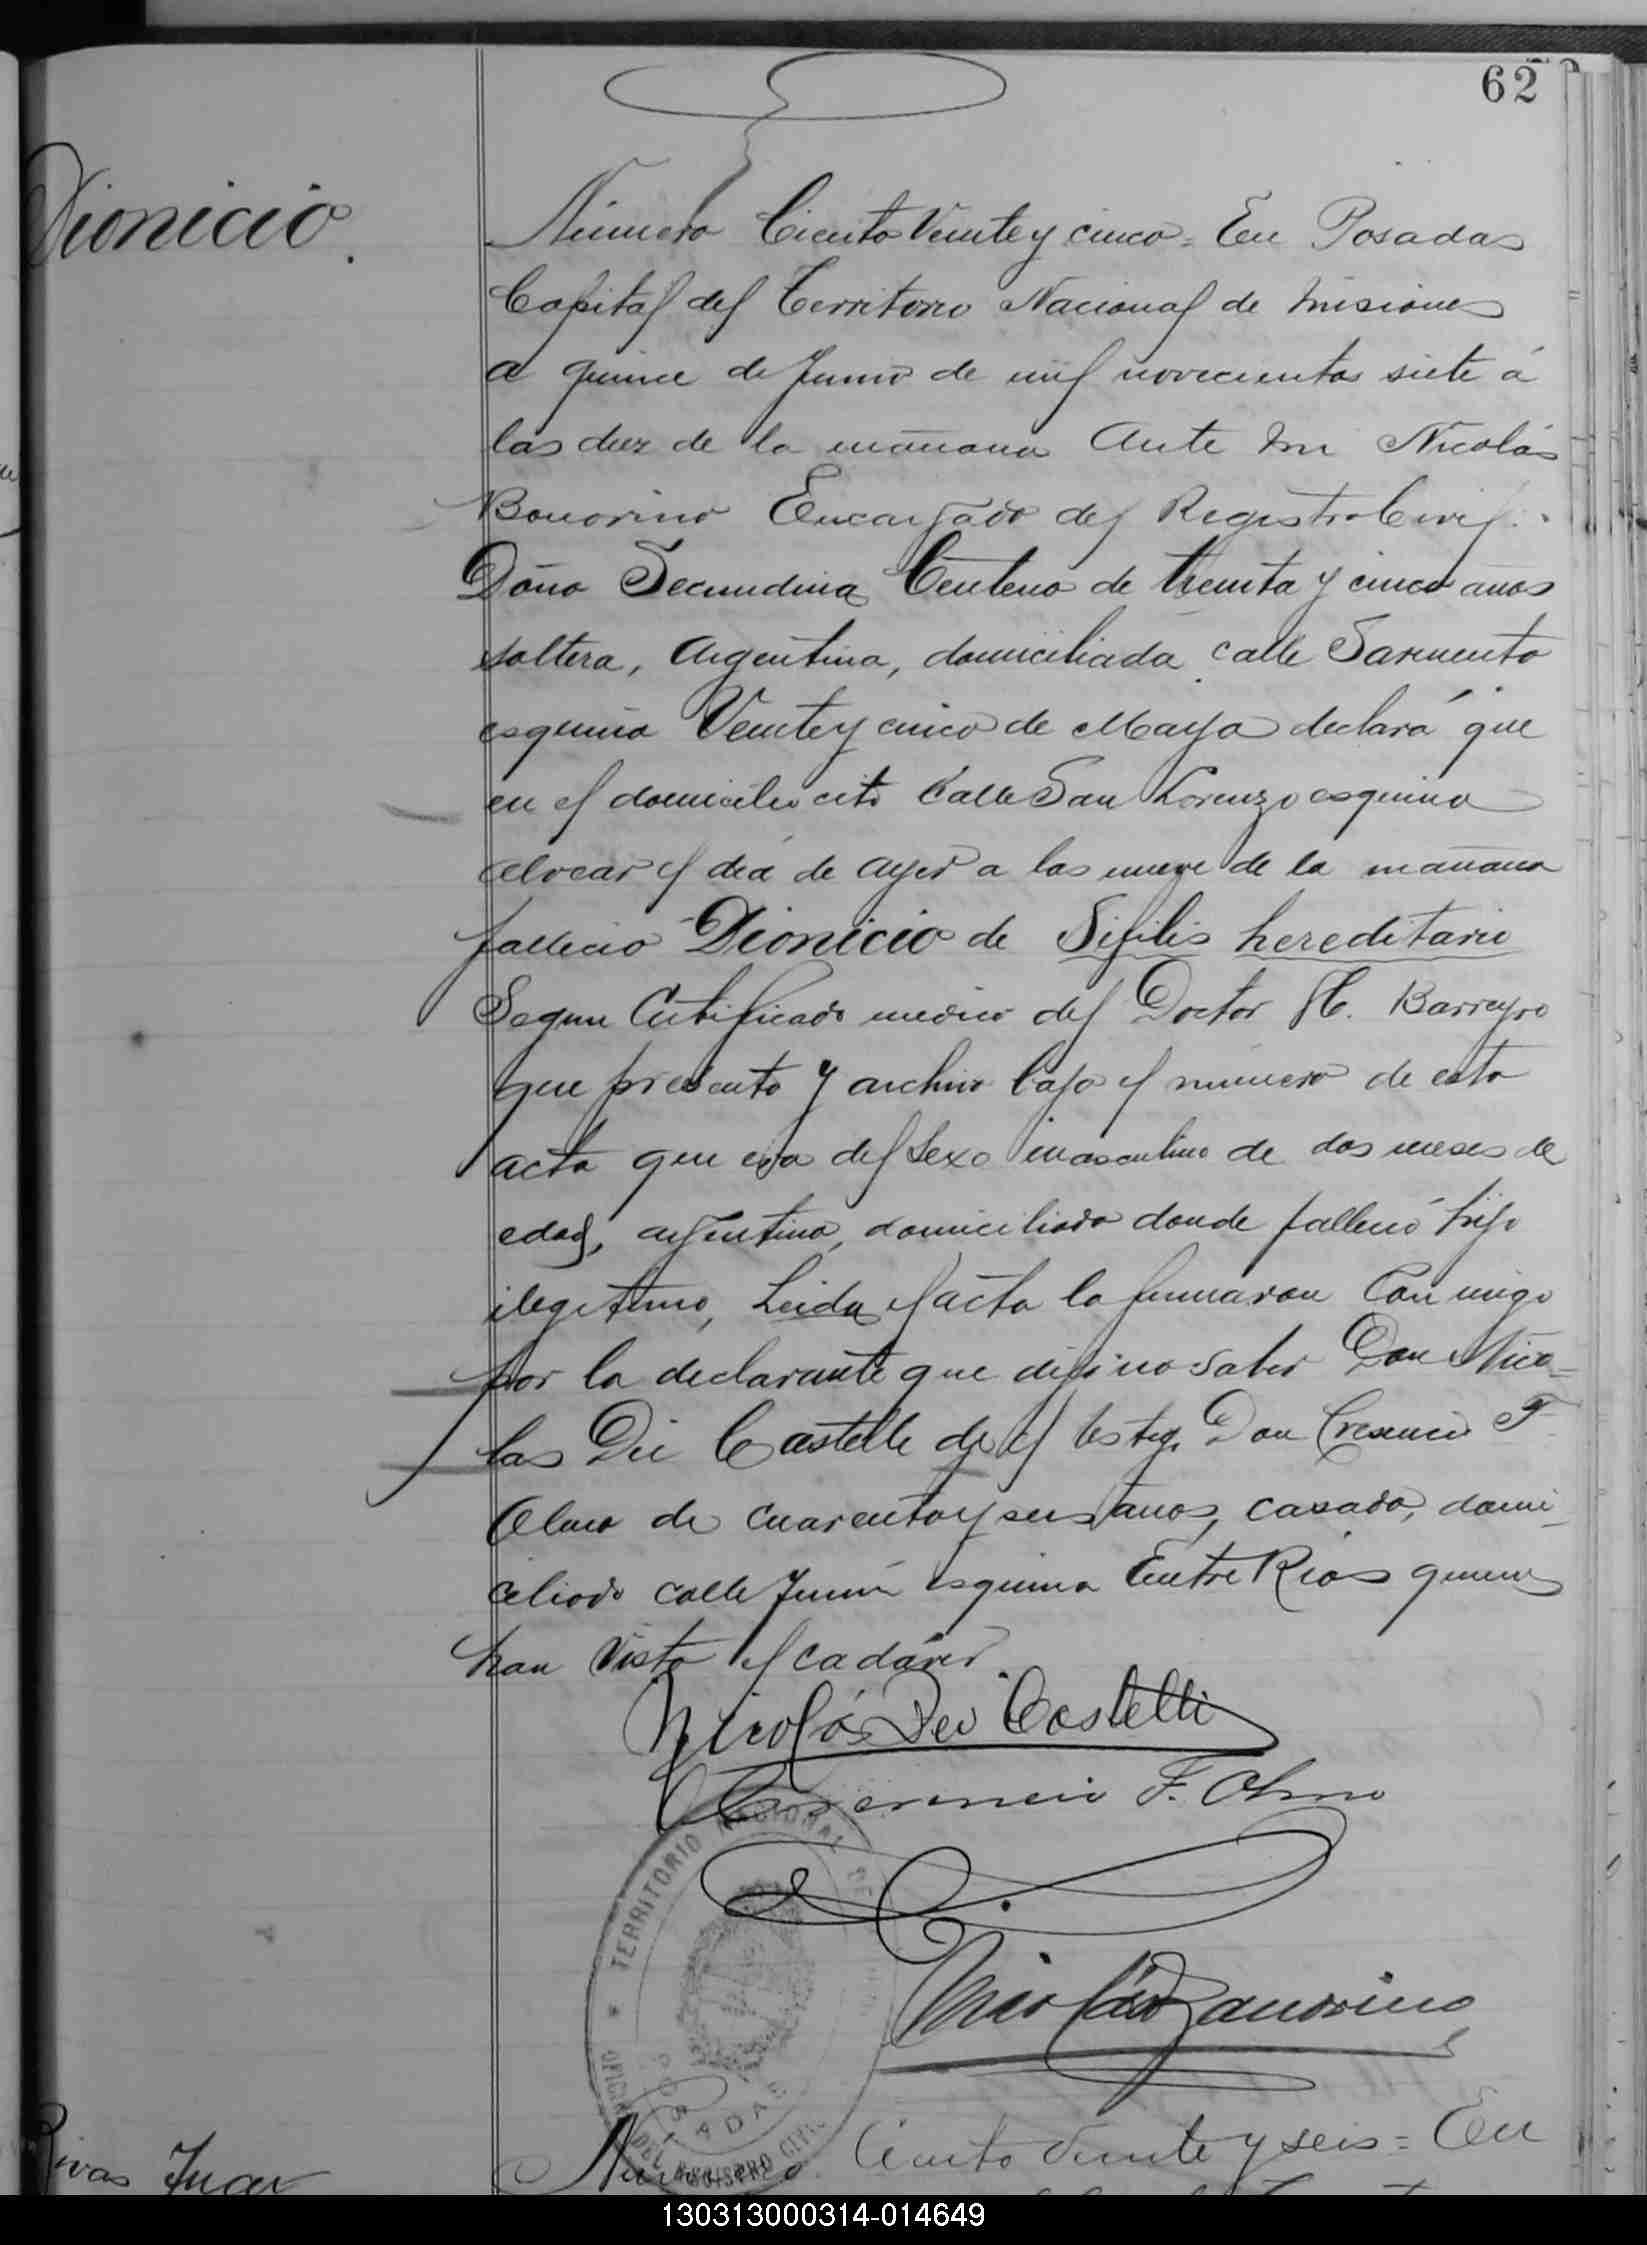 62
Dionicio.
Número Ciento Veinte y cinco = En Posadas
Capital del Territorio Nacional de Misiones
a quince de Junio de mil novecientos siete á
las diez de la mañana Ante mi Nicolás
Bonorino Encargado del Registro Civil.
Doña Secundina Centeno de treinta y cinco años
soltera, Argentina, domiciliada calle Sarmiento
esquina Veinte y cinco de Mayo declaró que
en el domicilio cito Calle San Lorenzo esquina
Alvear el dia de ayer a las nueve de la mañana
fallecio Dionicio de Sifilis hereditario
Segun Certificado medico del Doctor H. Barreyro
que presento y archivo bajo el número de esta
acta que era del sexo masculino de dos meses de
edad, argentino, domiciliado donde falleció hijo
ilegitimo, Leida el acta la firmaron Con migo
por la declarante que dijo no saber Don Nico=
las Dei Castelli de el testigo Don Cresencio F
Olmo de cuarenta y seis años, casado, domi
ciliado calle Junín esquina Entre Rios quienes
han visto el cadáver.
Nicolás Dei Castelli
Cresencio F. Olmo
Nicolás Bonorino
TERRITORIO NACIONAL DE
OFICINA DEL REGISTRO CIVIL
POSADAS
Rivas Juan
Número Ciento Veinte y seis = En
130313000314-014649